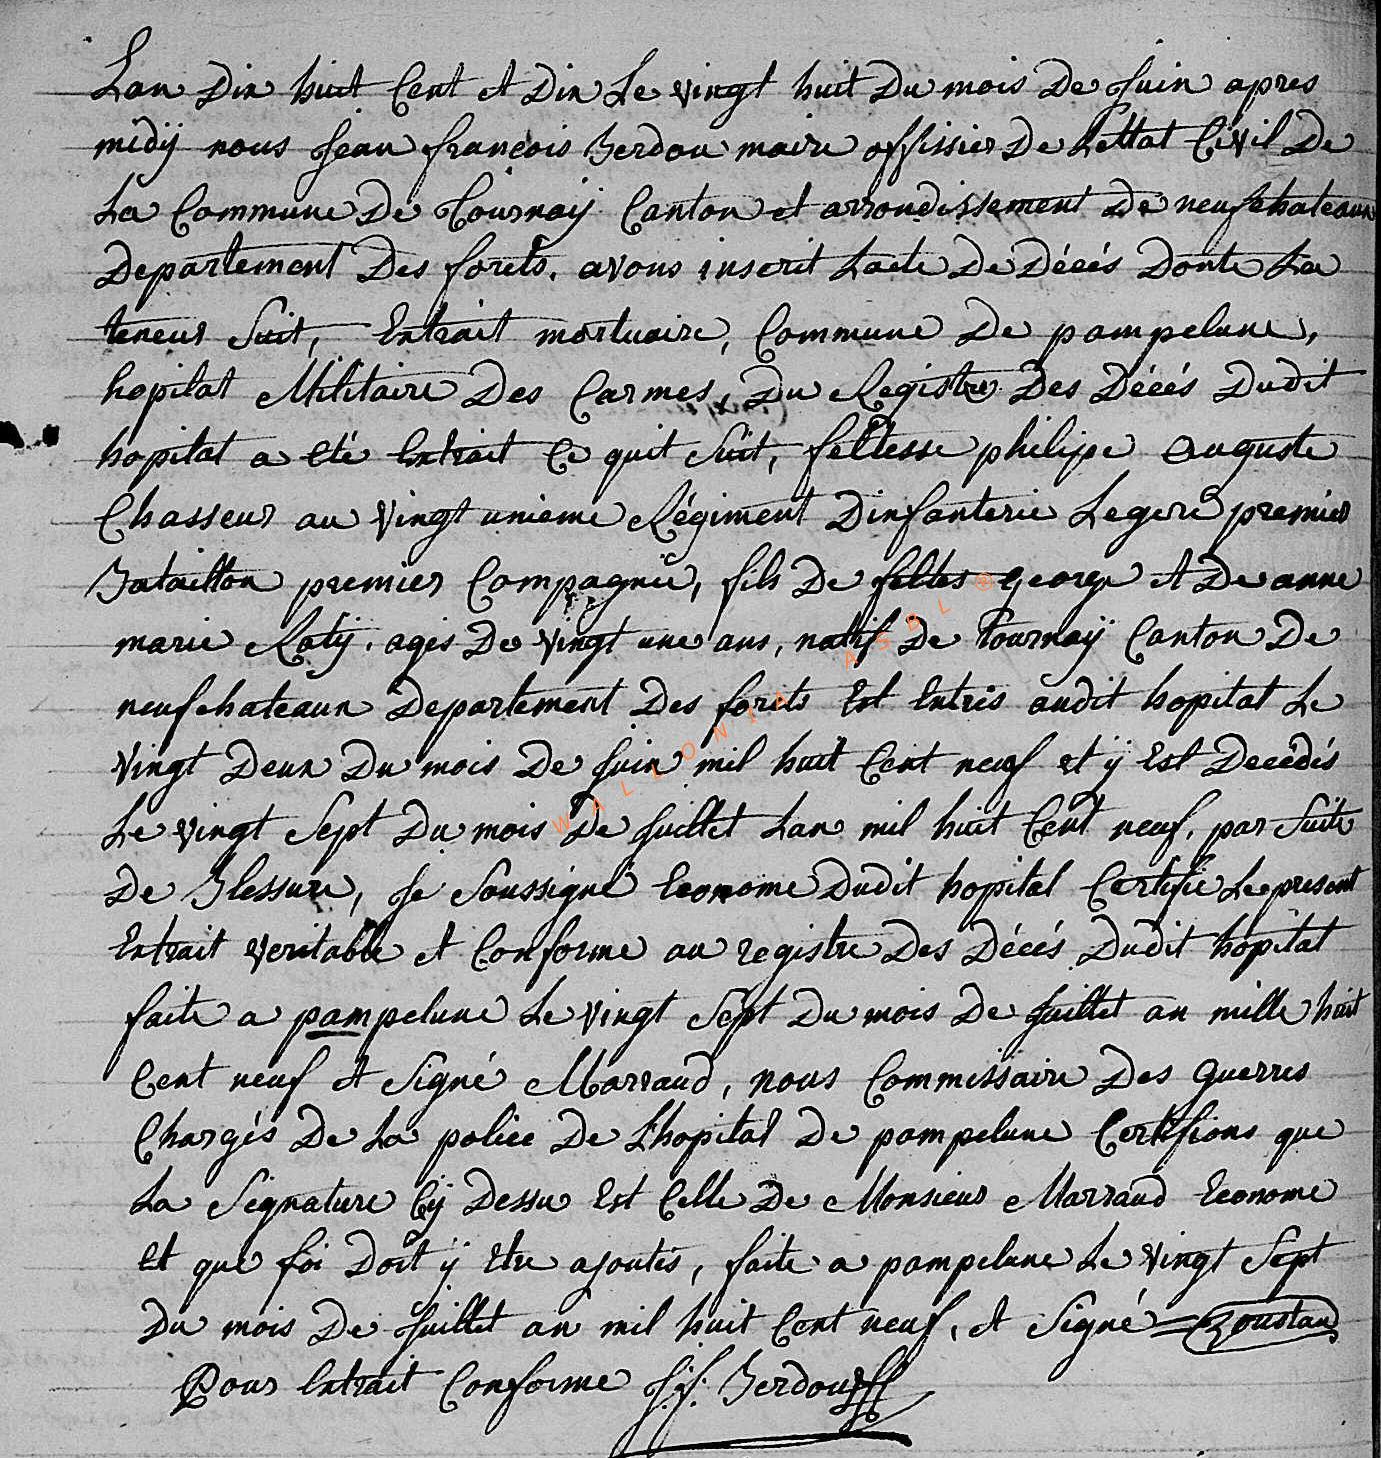 Lan Dix huit Cent et Dix Le vingt huit Du mois De Juin apres
midÿ nous Jean françois Berdou maire offissier De Lettat Civil De
La Commune De Tournaÿ Canton et arrondissement De neufchateaux
Departement Des forets. avons inscrit Lacte De Décés Donte La
teneur Suit, Extrait mortuaire, Commune De pampelune,
hopital Militaire Des Carmes, Du Registre Des Décés Dudit
hopital a été Extrait Ce quit Suit, feltesse philipe auguste
Chasseur au vingt unieme Régiment Dinfanterie Legere premier
Bataillon premier Compagnie, fils De feltes George et De anne
marie Ratÿ. agés De vingt une ans, natif De Tournaÿ Canton De
neufchateaux Departement Des forets Est Entrés audit hopital Le
vingt Deux Du mois De Juin mil huit Cent neuf et ÿ Est Decédés
Le vingt Sept Du mois De Juillet Lan mil huit Cent neuf. par Suite
De Blessure, Je Soussigné Econome Dudit hopital Certifie Le present
Extrait veritable et Conforme au registre Des Décés Dudit hopital
faite a pampelune Le vingt Sept Du mois De Juillet an mille huit
Cent neuf et Signé Marraud, nous Commissaire Des Guerres
Chargés De La police De Lhopital De pampelune Certifions que
La Segnature Cÿ Dessu Est Celle De Monsieur Marraud Econome
Et que foi Doit ÿ Etre ajoutés, faite a pampelune Le vingt Sept
Du mois De Juillet an mil huit Cent neuf, et Signé
Pour Extrait Conforme J: f: Berdou
WALLONIA ASBL ®